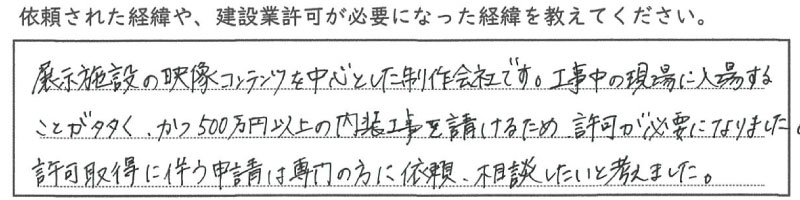 依頼された経緯や、建設業許可が必要になった経緯を教えてください。
展示施設の映像コンテンツを中心とした制作会社です。工事中の現場に入場する
ことが多く、かつ500万円以上の内装工事を請けるため、許可が必要になりました。
許可取得に伴う申請は専門の方に依頼、相談したいと考えました。